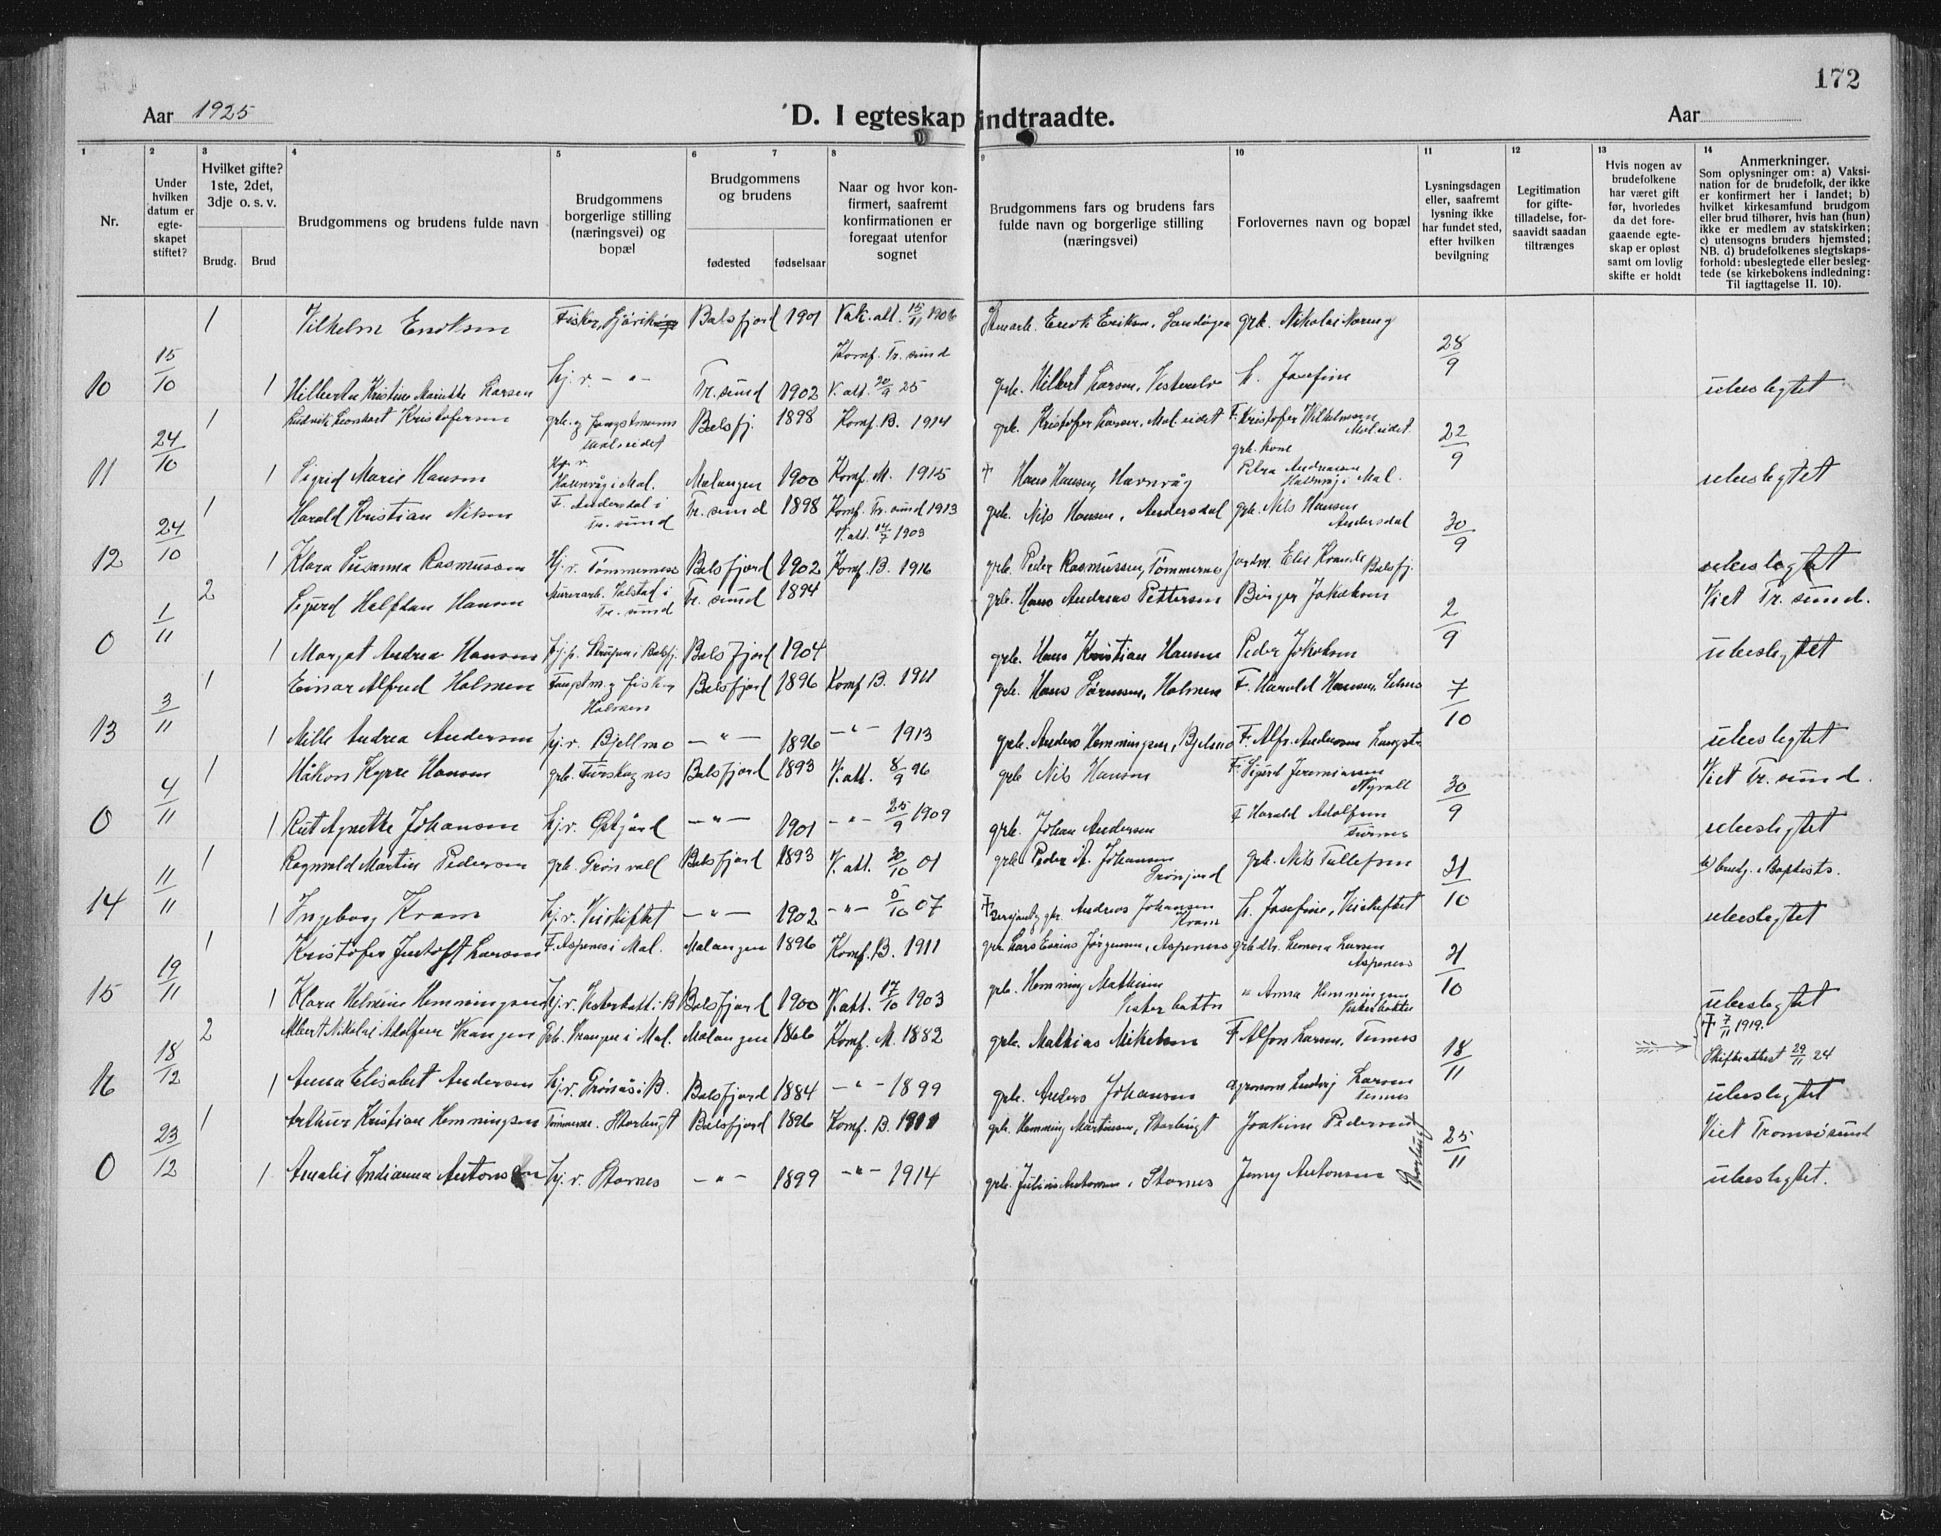 172
Aar 1925
D. I egteskap indtraadte.
Aar
1 2 3 4 5 6 7 8 9 10 11 12 13 14
Nr.
Under hvilken datum er egte-skapet stiftet?
Hvilket gifte? 1ste, 2det, 3dje o. s. v.
Brudg. Brud
Brudgommens og brudens fulde navn
Brudgommens borgerlige stilling (næringsvei) og bopæl
Brudgommens og brudens
fødested fødselsaar
Naar og hvor kon-firmert, saafremt konfirmationen er foregaat utenfor sognet
Brudgommens fars og brudens fars fulde navn og borgerlige stilling (næringsvei)
Forlovernes navn og bopæl
Lysningsdagen eller, saafremt lysning ikke har fundet sted, efter hvilken bevilgning
Legitimation for gifte-tilladelse, for-saavidt saadan tiltrænges
Hvis nogen av brudefolkene har været gift før, hvorledes da det fore-gaaende egte-skap er opløst samt om lovlig skifte er holdt
Anmerkninger. Som oplysninger om: a) Vaksi-nation for de brudefolk, der ikke er konfirmert her i landet; b) hvilket kirkesamfund brudgom eller brud tilhører, hvis han (hun) ikke er medlem av statskirken; c) utensogns bruders hjemsted; NB. d) brudefolkenes slegtskaps-forhold: ubeslegtede eller besleg-tede (se kirkebokens indledning: Til iagttagelse II. 10).
1 Vilhelm Enoksen Fisker Balsfjord 1901 Vak.att. 15/11 1906 Enok Eriksen, grb. Nikolai
10 15/10 1 Kristine Mariette Larsen Hj. v. — " — Tr. sund 1902 Konf. Tr. sund V. att. 20/9 25 grb. Hilbert Larsen, h. Josefine 28/9 ubeslegtet
1 Ludvik Leonhart Kristofersen grb. g fangstmann Balsfj. 1898 Konf. B. 1914 grb. Kristofer Larsen, Mal.eidet F. Kristofer Vilhelmsen Mal.eidet
11 24/10 1 Sigrid Marie Hansen Hj. v. Havnvåg i Mal. Malangen 1900 Konf. M. 1915 ✝ Hans Hansen, Havnvåg grb. kone Petra Andreasen Havnvåg i Mal. 22/9 ubeslegtet
1 Harald Kristian Nilsen F. Andersdal i Tr. sund Tr. sund 1898 Konf. Tr. sund 1913 grb. Nils Hansen, Andersdal grb. Nils Hansen Andersdal
12 24/10 1 Klara Susanna Rasmussen Hj. v. Tømmernes Balsfjord 1902 V. att. 17/7 1903 Konf. B. 1916 grb. Peder Rasmussen, Tømmernes Jordm. Elis Balsfj. 30/9 ubeslegtet
2 Sigurd Halfdan Hansen i Tr. sund Tr. sund 1894 grb. Hans Andreas Pettersen Birger Jakobsen Viet Tr. sund.
0 1/11 1 Margot Andrea Hansen Balsfj. Balsfjord 1904 grb. Hans Kristian Hansen Peder Jakobsen 2/9 ubeslegtet
1 Einar Alfred Holmen Fangstm. g fisker Holmen Balsfjord 1896 Konf B. 1911 grb. Hans Sørensen, Holmen F. Harald Hansen,
13 3/11 1 Mille Andrea Andersen hj. v. Bjellmo — " — 1896 — " — 1913 grb. Anders Hemmingsen, F. Alfr. Andersen 7/10 ubeslegtet
1 Håkon Kyrre Hansen grb. Balsfjord 1893 V. att. 8/9 96 grb Nils Hansen F. Sigurd Jeremiassen Viet Tr. sund.
0 4/11 1 Rut Agnethe Johansen hj. v. — " — 1901 — " — 25/9 1909 grb. Johan Andersen F Harald Adolfsen 30/9 ubeslegtet
1 Ragnvald Martin Pedersen grb. Grønvoll Balsfjord 1893 V. att. 30/10 01 grb Peder A. Johansen Grønjord grb. Nils Tollefsen b) brudg. Baptists.
14 11/11 1 Ingeborg Kram hj. v. — " — 1902 — " — 5/10 07 ✝ Andreas Johansen Kram h. Josefine, 21/10 ubeslegtet
1 Kristofer Larsen F. Aspenes i Mal. Malangen 1896 Konf. B. 1911 grb Lars Esaias Jørgensen, Aspenes Larsen Aspenes
15 19/11 1 Klara Helmine Hemmingsen hj. v. Balsfjord 1900 V. att 17/10 1903 grb. Hemming Mathisen " Anna Hemmingsen 21/10 ubeslegtet
2 Albert Nikolai Adolfsen Vrangen Grb. Vrangen i Mal. Malangen 1866 Konf. M. 1882 grb. Mathias Mikelsen F Alfon Larsen, Tennes ✝ 7/11 1919. Skifteattest 29/11 24
16 18/12 1 Anna Elisabet Andersen hj. v. Grønås i B. Balsfjord 1884 — " — 1899 grb. Anders Johansen agronom Ludvig Larsen Tennes 18/11 ubeslegtet
1 Arthur Kristian Hemmingsen Balsfjord 1896 Konf. B. 1911 grb. Hemming Martinsen, Joakim Pedersen Viet Tromsøsund
0 23/12 1 Amalie Indianna Antonsen hj. v. Stornes — " — 1899 — " — 1914 grb. Julius Antonsen, Stornes Jenny Antonsen 25/11 ubeslegtet.